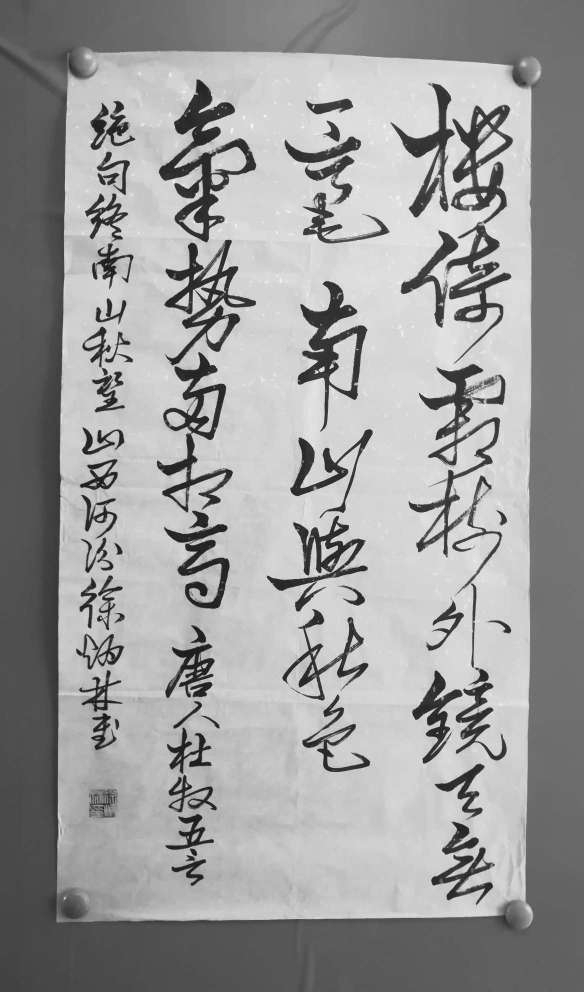 楼倚霜树外镜天無
一毫南山與秋色
氣势两相高唐人杜牧五言
绝句终南山秋望山西河汾徐炳林書